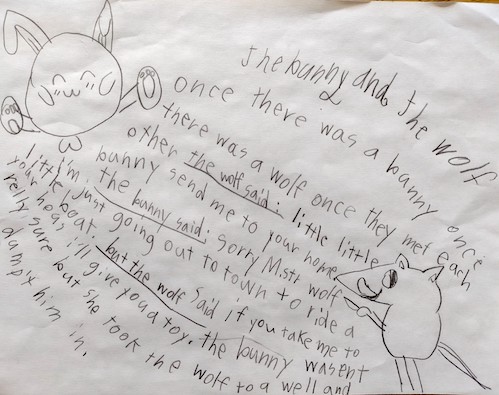 The bunny and the wolf
once there was a bunny once
there was a wolf once they met each
other the wolf said: little little
bunny send me to your home
the bunny said: sorry Mistr wolf
I'm just going out to town to ride a
little boat. but the wolf said if you take me to
your hous i'll give you a toy. the bunny wasent
relly sure but she took the wolf to a well and
dampt him in.